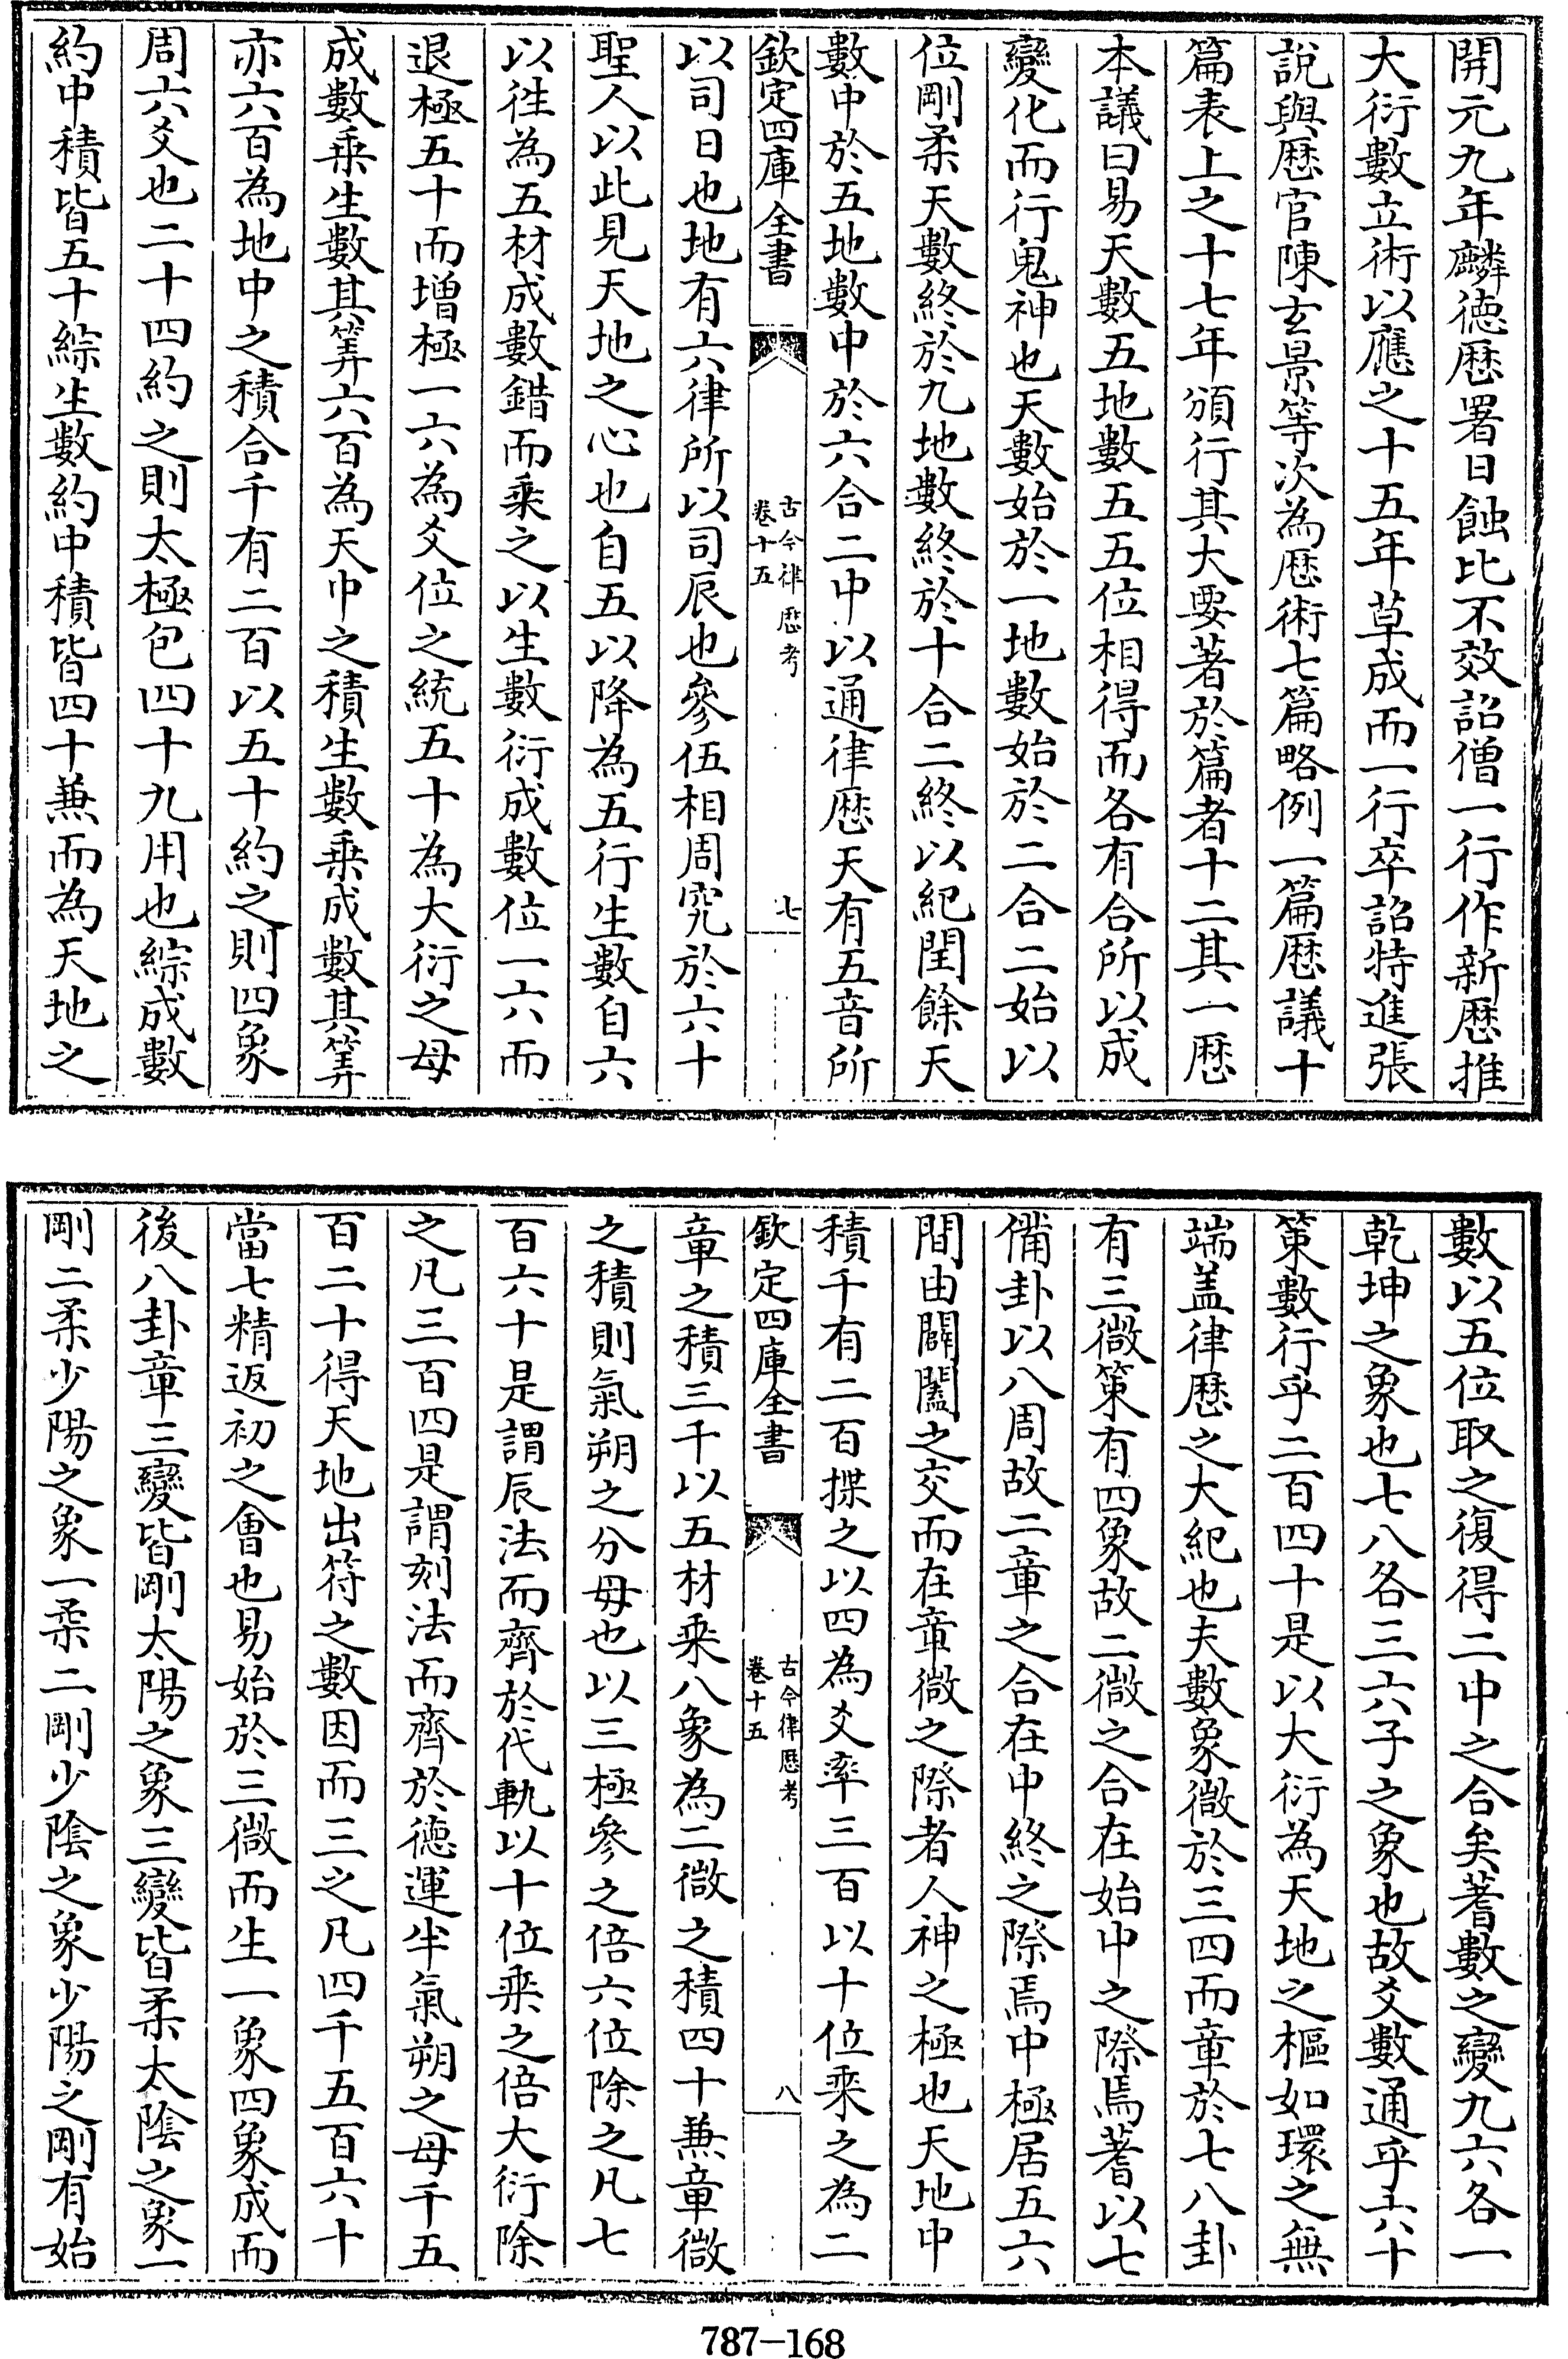 開元九年麟徳厯署日蝕比不效詔僧一行作新厯推
大衍數立術以應之十五年草成而一行卒詔特進張
說與厯官陳玄景等次為厯術七篇略例一篇厯議十
篇表上之十七年頒行其大要著於篇者十二其一厯
本議曰易天數五地數五五位相得而各有合所以成
變化而行鬼神也天數始於一地數始於二合二始以
位剛柔天數終於九地數終於十合二終以紀閏餘天
數中於五地數中於六合二中以通律厯天有五音所
欽定四庫全書
古今律厯考
卷十五
七
以司日也地有六律所以司辰也參伍相周究於六十
聖人以此見天地之心也自五以降為五行生數自六
以徃為五材成數錯而乗之以生數衍成數位一六而
退極五十而增極一六為爻位之統五十為大衍之母
成數乗生數其筭六百為天中之積生數乗成數其筭
亦六百為地中之積合千有二百以五十約之則四象
周六爻也二十四約之則太極包四十九用也綜成數
約中積皆五十綜生數約中積皆四十兼而為天地之
數以五位取之復得二中之合矣蓍數之變九六各一
乾坤之象也七八各三六子之象也故爻數通乎六十
策數行乎二百四十是以大衍為天地之樞如環之無
端盖律厯之大紀也夫數象微於三四而章於七八卦
有三微策有四象故二微之合在始中之際焉蓍以七
備卦以八周故二章之合在中終之際焉中極居五六
間由闢闔之交而在章微之際者人神之極也天地中
積千有二百揲之以四為爻率三百以十位乗之為二
欽定四庫全書
古今律厯考
卷十五
八
章之積三千以五材乗八象為二微之積四十兼章微
之積則氣朔之分母也以三極參之倍六位除之凡七
百六十是謂辰法而齊於代軌以十位乗之倍大衍除
之凡三百四是謂刻法而齊於德運半氣朔之母千五
百二十得天地出符之數因而三之凡四千五百六十
當七精返初之會也易始於三微而生一象四象成而
後八卦章三變皆剛太陽之象三變皆柔太陰之象一
剛二柔少陽之象一柔二剛少陰之象少陽之剛有始
787-168